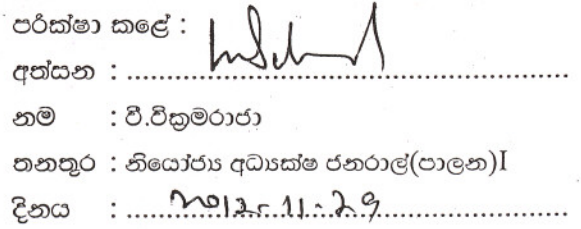 පරීක්ෂා කළේ :
අත්සන : ........................................................
නම : වී.වික්‍රමරාජා
තනතුර : නියෝජ්‍ය අධ්‍යක්ෂ ජනරාල්(පාලන)I
දිනය : ......2012-11-29......................